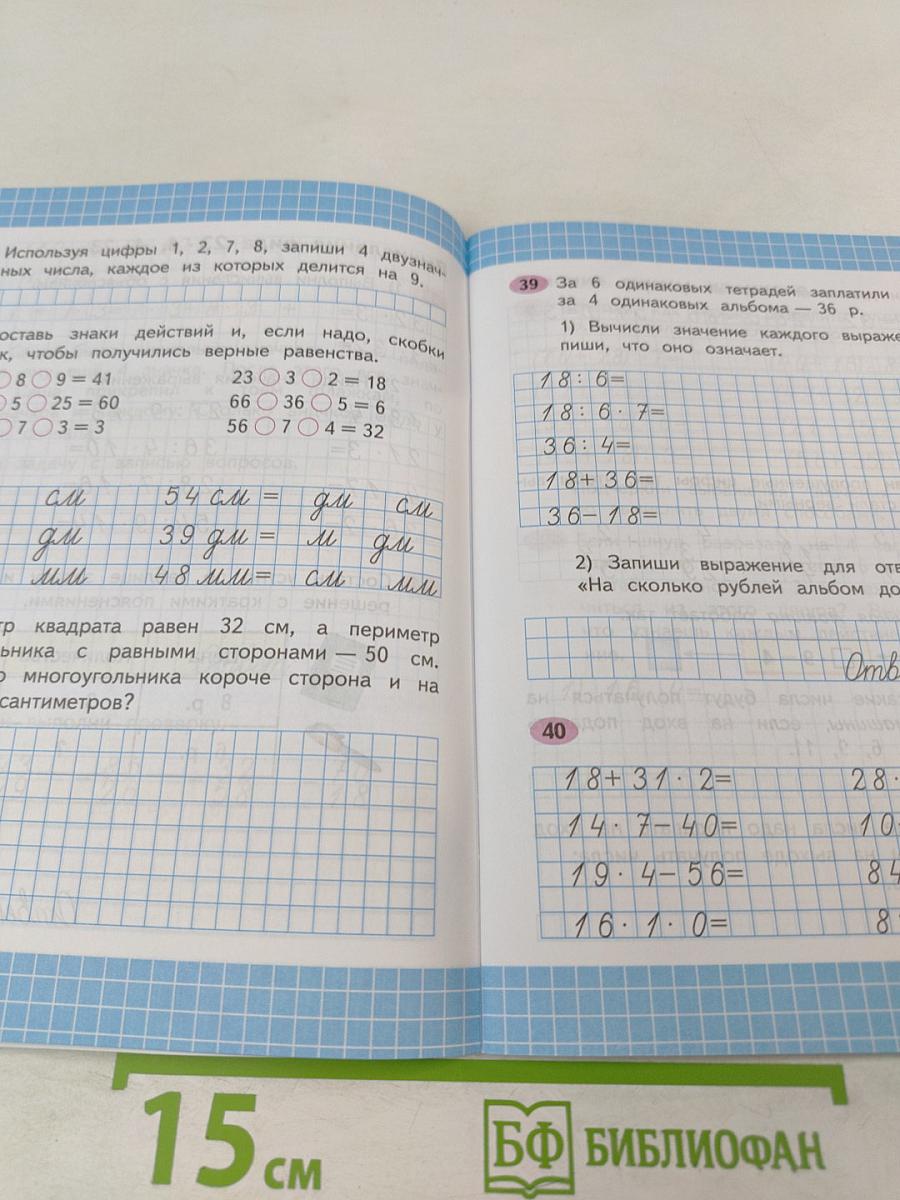 Используя цифры 1, 2, 7, 8, запиши 4 двузнач-
ных числа, каждое из которых делится на 9.
оставь знаки действий и, если надо, скобки
к, чтобы получились верные равенства.
8 ○ 9 = 41
23 ○ 3 ○ 2 = 18
5 ○ 25 = 60
66 ○ 36 ○ 5 = 6
7 ○ 3 = 3
56 ○ 7 ○ 4 = 32
см 54 см = дм см
дм 39 дм = м дм
мм 48 мм = см мм
тр квадрата равен 32 см, а периметр
льника с равными сторонами — 50 см.
о многоугольника короче сторона и на
сантиметров?
39 За 6 одинаковых тетрадей заплатили
за 4 одинаковых альбома — 36 р.
1) Вычисли значение каждого выраже
пиши, что оно означает.
18 : 6=
18 : 6 · 7=
36 : 4=
18+36=
36−18=
2) Запиши выражение для отв
«На сколько рублей альбом до
Отв
40
18+31 · 2= 28 ·
14 · 7−40= 10
19 · 4−56= 84
16 · 1 · 0= 8
15 см
БФ БИБЛИОФАН